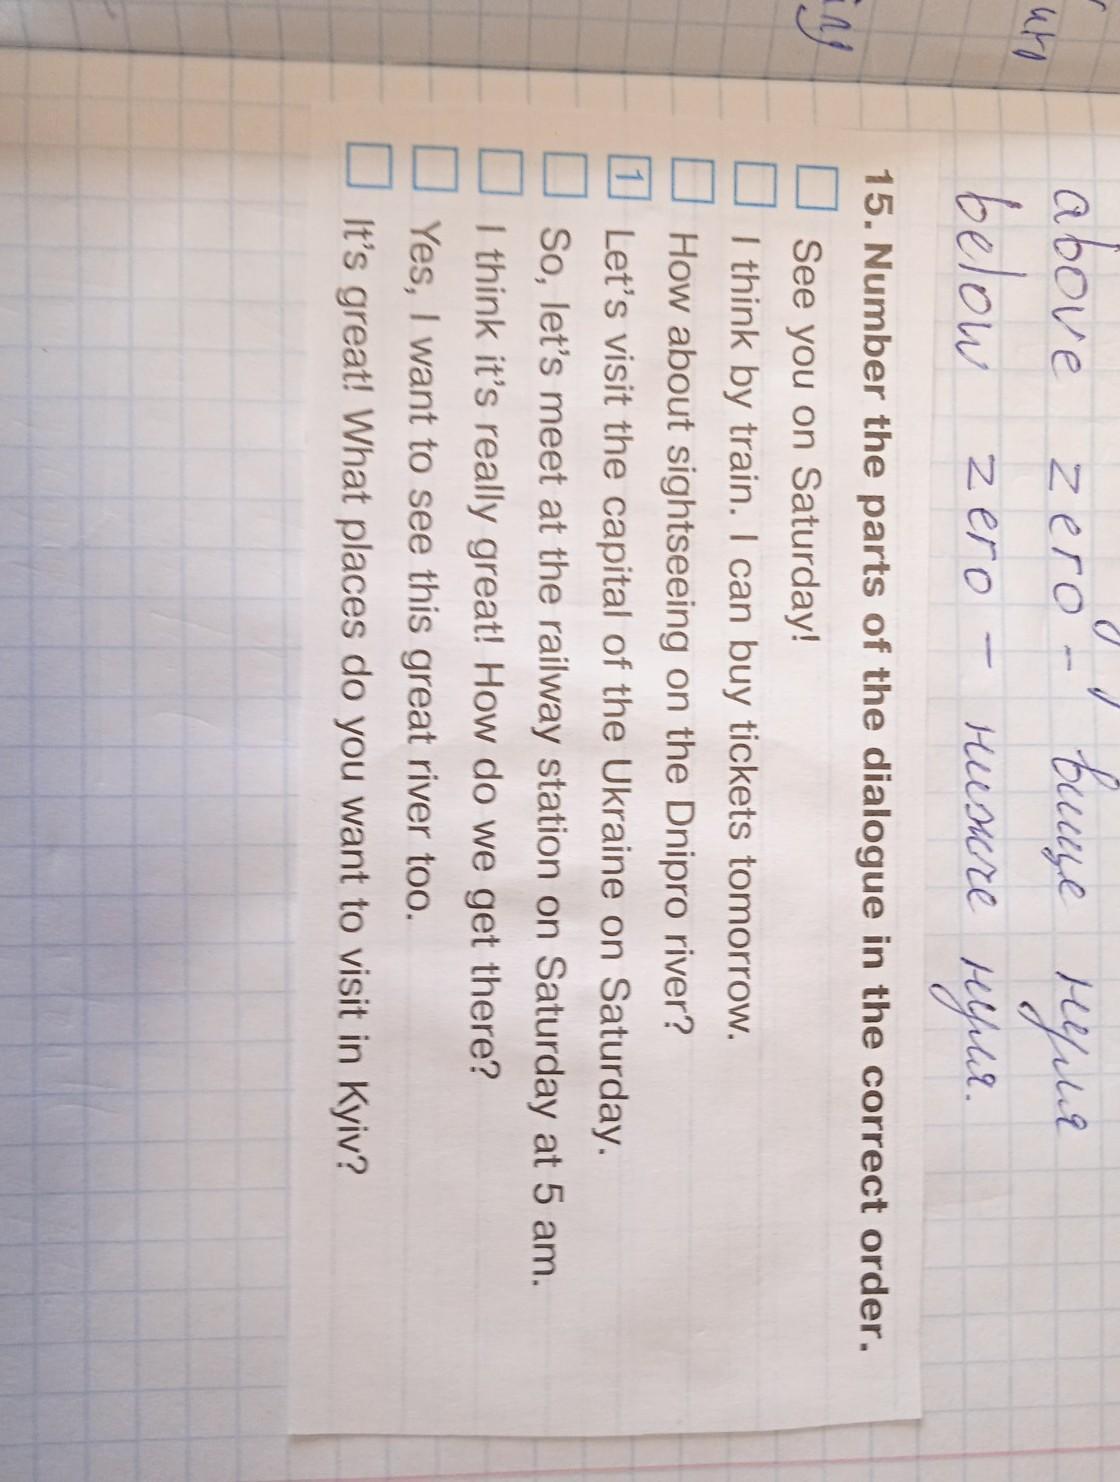 above zero - вище нуля
below zero - нижче нуля.
15. Number the parts of the dialogue in the correct order.
See you on Saturday!
I think by train. I can buy tickets tomorrow.
How about sightseeing on the Dnipro river?
1 Let's visit the capital of the Ukraine on Saturday.
So, let's meet at the railway station on Saturday at 5 am.
I think it's really great! How do we get there?
Yes, I want to see this great river too.
It's great! What places do you want to visit in Kyiv?